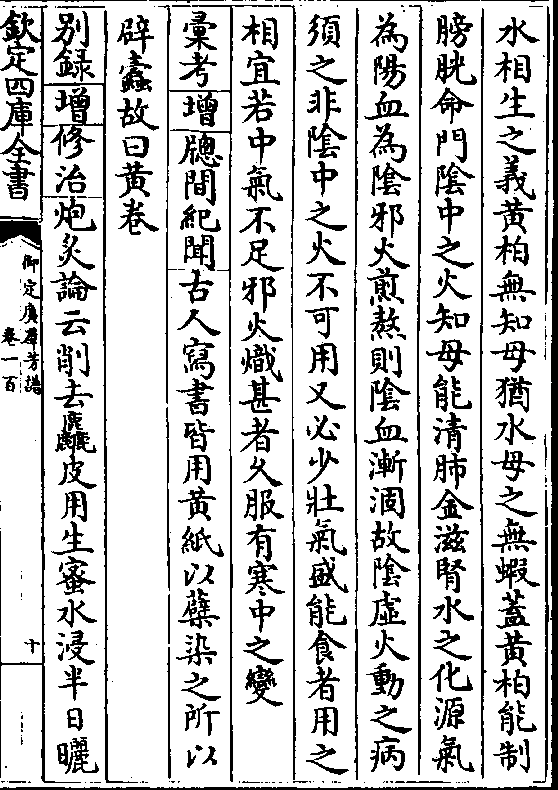 水相生之義黄柏無知母猶水母之無蝦蓋黄柏能制
膀胱命門陰中之火知母能清肺金滋腎水之化源氣
為陽血為陰邪火煎熬則陰血漸涸故陰虚火動之病
須之非陰中之火不可用又必少壯氣盛能食者用之
相宜若中氣不足邪火熾甚者久服有寒中之變
彚考增牕間紀聞古人寫書皆用黄紙以蘗染之所以
辟蠧故曰黄卷
别録增修治炮炙論云削去麤皮用生蜜水浸半日曬
欽定四庫全書
御定廣羣芳譜
卷一百
十